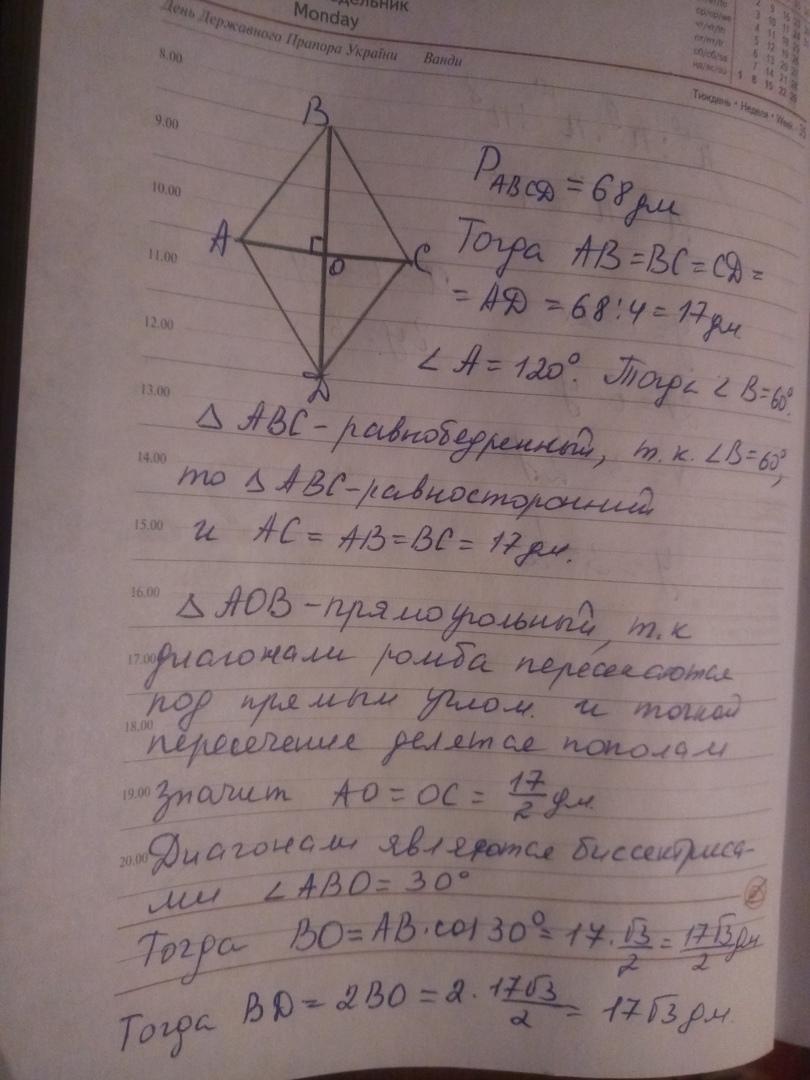 Monday
День Державного Прапора України
Тиждень • Неделя • Week 35
8.00
9.00
10.00
11.00
12.00
13.00
14.00
15.00
16.00
17.00
18.00
19.00
20.00
B
A
O
C
D
P ABCD = 68 дм
Тогда AB = BC = CD =
= AD = 68:4 = 17 дм
∠A = 120°. Тогда ∠B = 60°.
△ ABC - равнобедренный, т.к. ∠B = 60°,
то △ ABC - равносторонний
и AC = AB = BC = 17 дм.
△ AOB - прямоугольный, т.к
диагонали ромба пересекаются
под прямым углом. и точкой
пересечение делятся пополам
Значит AO = OC = 17/2 дм.
Диагонали являются биссектриса-
ми ∠ABO = 30°
Тогда BO = AB·cos 30° = 17·√3/2 = 17√3/2 дм
Тогда BD = 2BO = 2·17√3/2 = 17√3 дм.